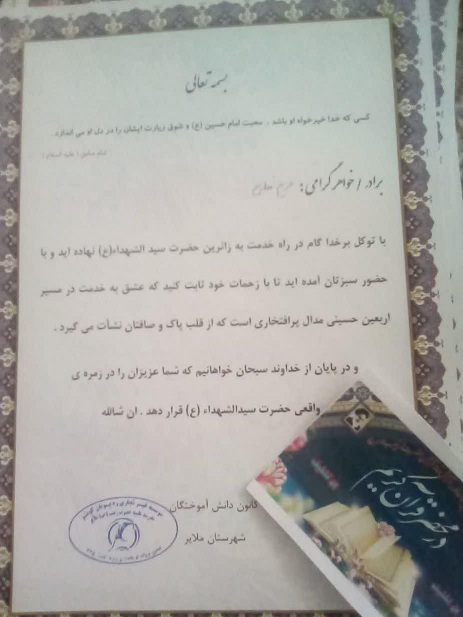 بسمه تعالی
کسی که خدا خیرخواه او باشد ، محبت امام حسین (ع) و شوق زیارت ایشان را در دل او می اندازد .
امام صادق ( علیه السلام )
برادر / خواهر گرامی :
با توکل برخدا گام در راه خدمت به زائرین حضرت سید الشهداء(ع) نهاده اید و با
حضور سبزتان آمده اید تا با زحمات خود ثابت کنید که عشق به خدمت در مسیر
اربعین حسینی مدال پرافتخاری است که از قلب پاک و صافتان نشأت می گیرد .
و در پایان از خداوند سبحان خواهانیم که شما عزیزان را در زمره ی
واقعی حضرت سیدالشهداء (ع) قرار دهد . ان شالله
کانون دانش آموختگان
شهرستان ملایر
در محضر قرآن کریم